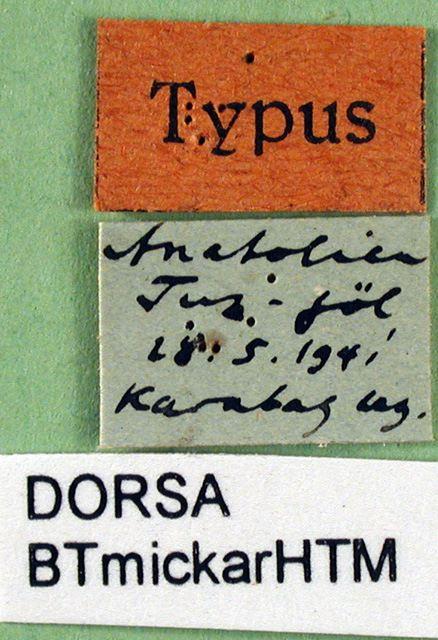 Typus
Anatolien
Tuz-göl
28.5.1941
Karabag leg.
DORSA
BTmickarHTM